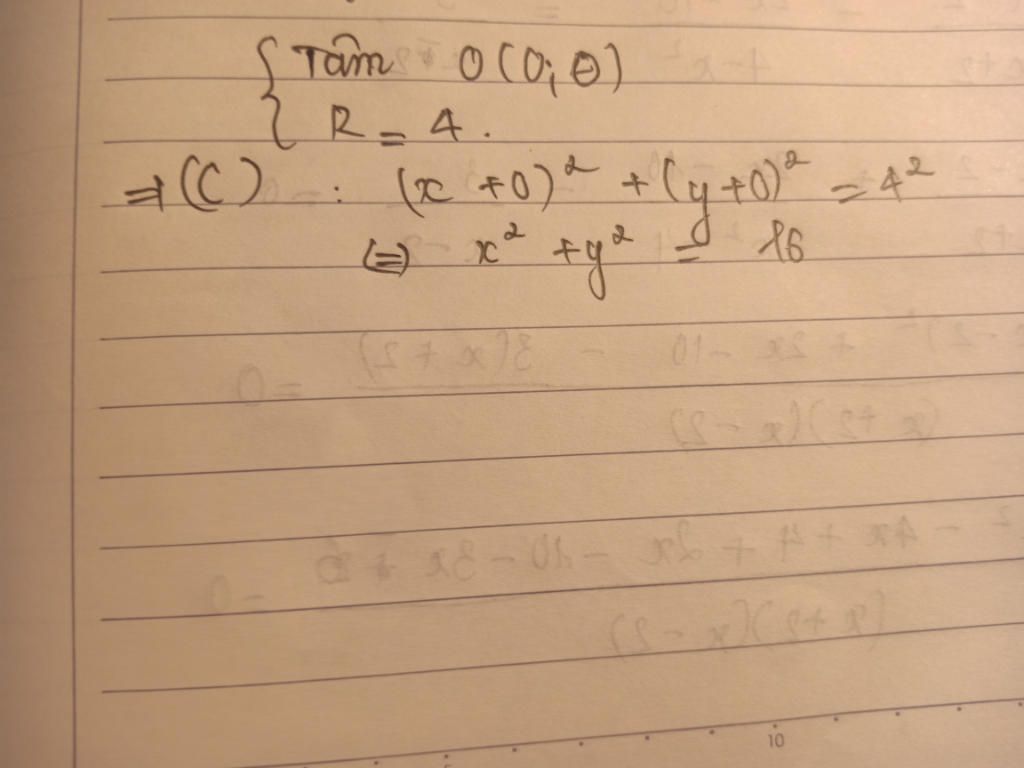 { Tâm O(0; 0)
R = 4.
⇒ (C) : (x + 0)² + (y + 0)² = 4²
(=) x² + y² = 16
10